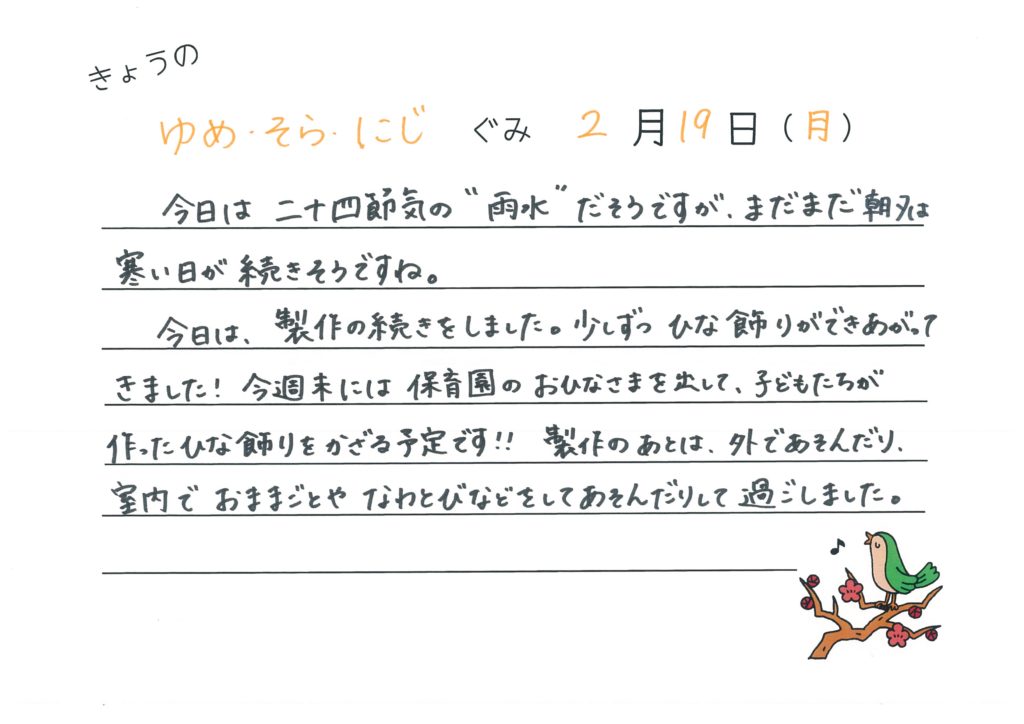 きょうの
ゆめ・そら・にじ ぐみ 2月19日(月)
今日は 二十四節気の“雨水”だそうですが、まだまだ朝夕は
寒い日が続きそうですね。
今日は、製作の続きをしました。少しずつ ひな飾りができあがって
きました！今週末には 保育園の おひなさまを出して、子どもたちが
作ったひな飾りをかざる予定です!! 製作のあとは、外であそんだり、
室内で おままごとや なわとびなどをしてあそんだりして過ごしました。